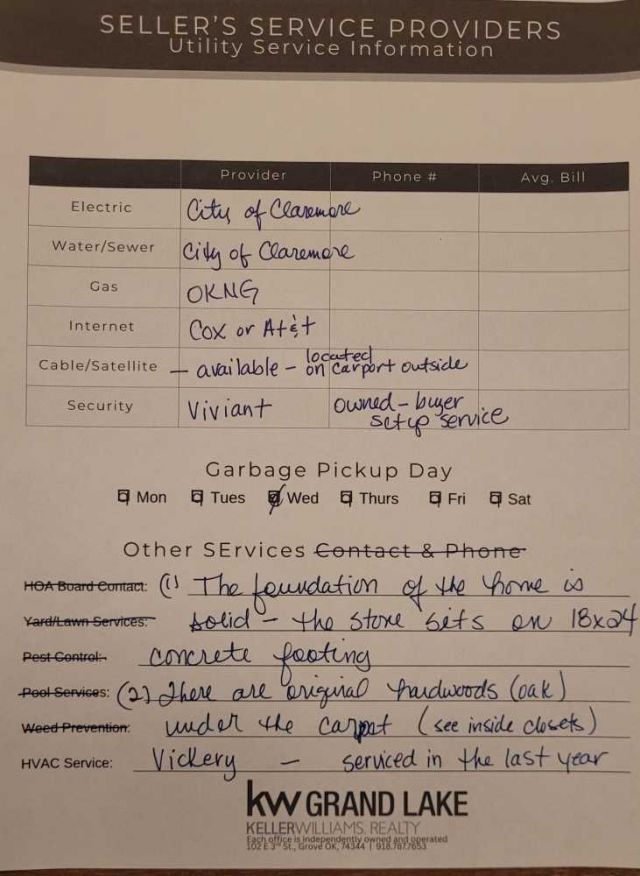 SELLER'S SERVICE PROVIDERS
Utility Service Information
Provider Phone # Avg. Bill
Electric City of Claremore
Water/Sewer City of Claremore
Gas OKNG
Internet Cox or At&t
Cable/Satellite — available - located on carport outside
Security Viviant owned - buyer setup service
Garbage Pickup Day
Mon Tues Wed Thurs Fri Sat
Other SErvices Contact & Phone
HOA Board Contact: (1) The foundation of the home is
Yard/Lawn Services: solid - the stone sits on 18x24
Pest Control: concrete footing
Pool Services: (2) There are original hardwoods (oak)
Weed Prevention: under the carpet (see inside closets)
HVAC Service: Vickery - serviced in the last year
kw GRAND LAKE
KELLERWILLIAMS. REALTY
Each office is independently owned and operated
102 E 3rd St., Grove OK, 74344 | 918.787.7653